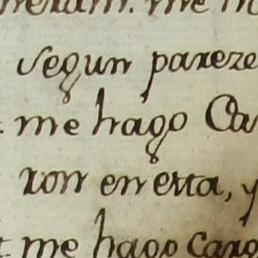 me
segun pareze
me hago Ca
ron en esta, y
me hago Carg